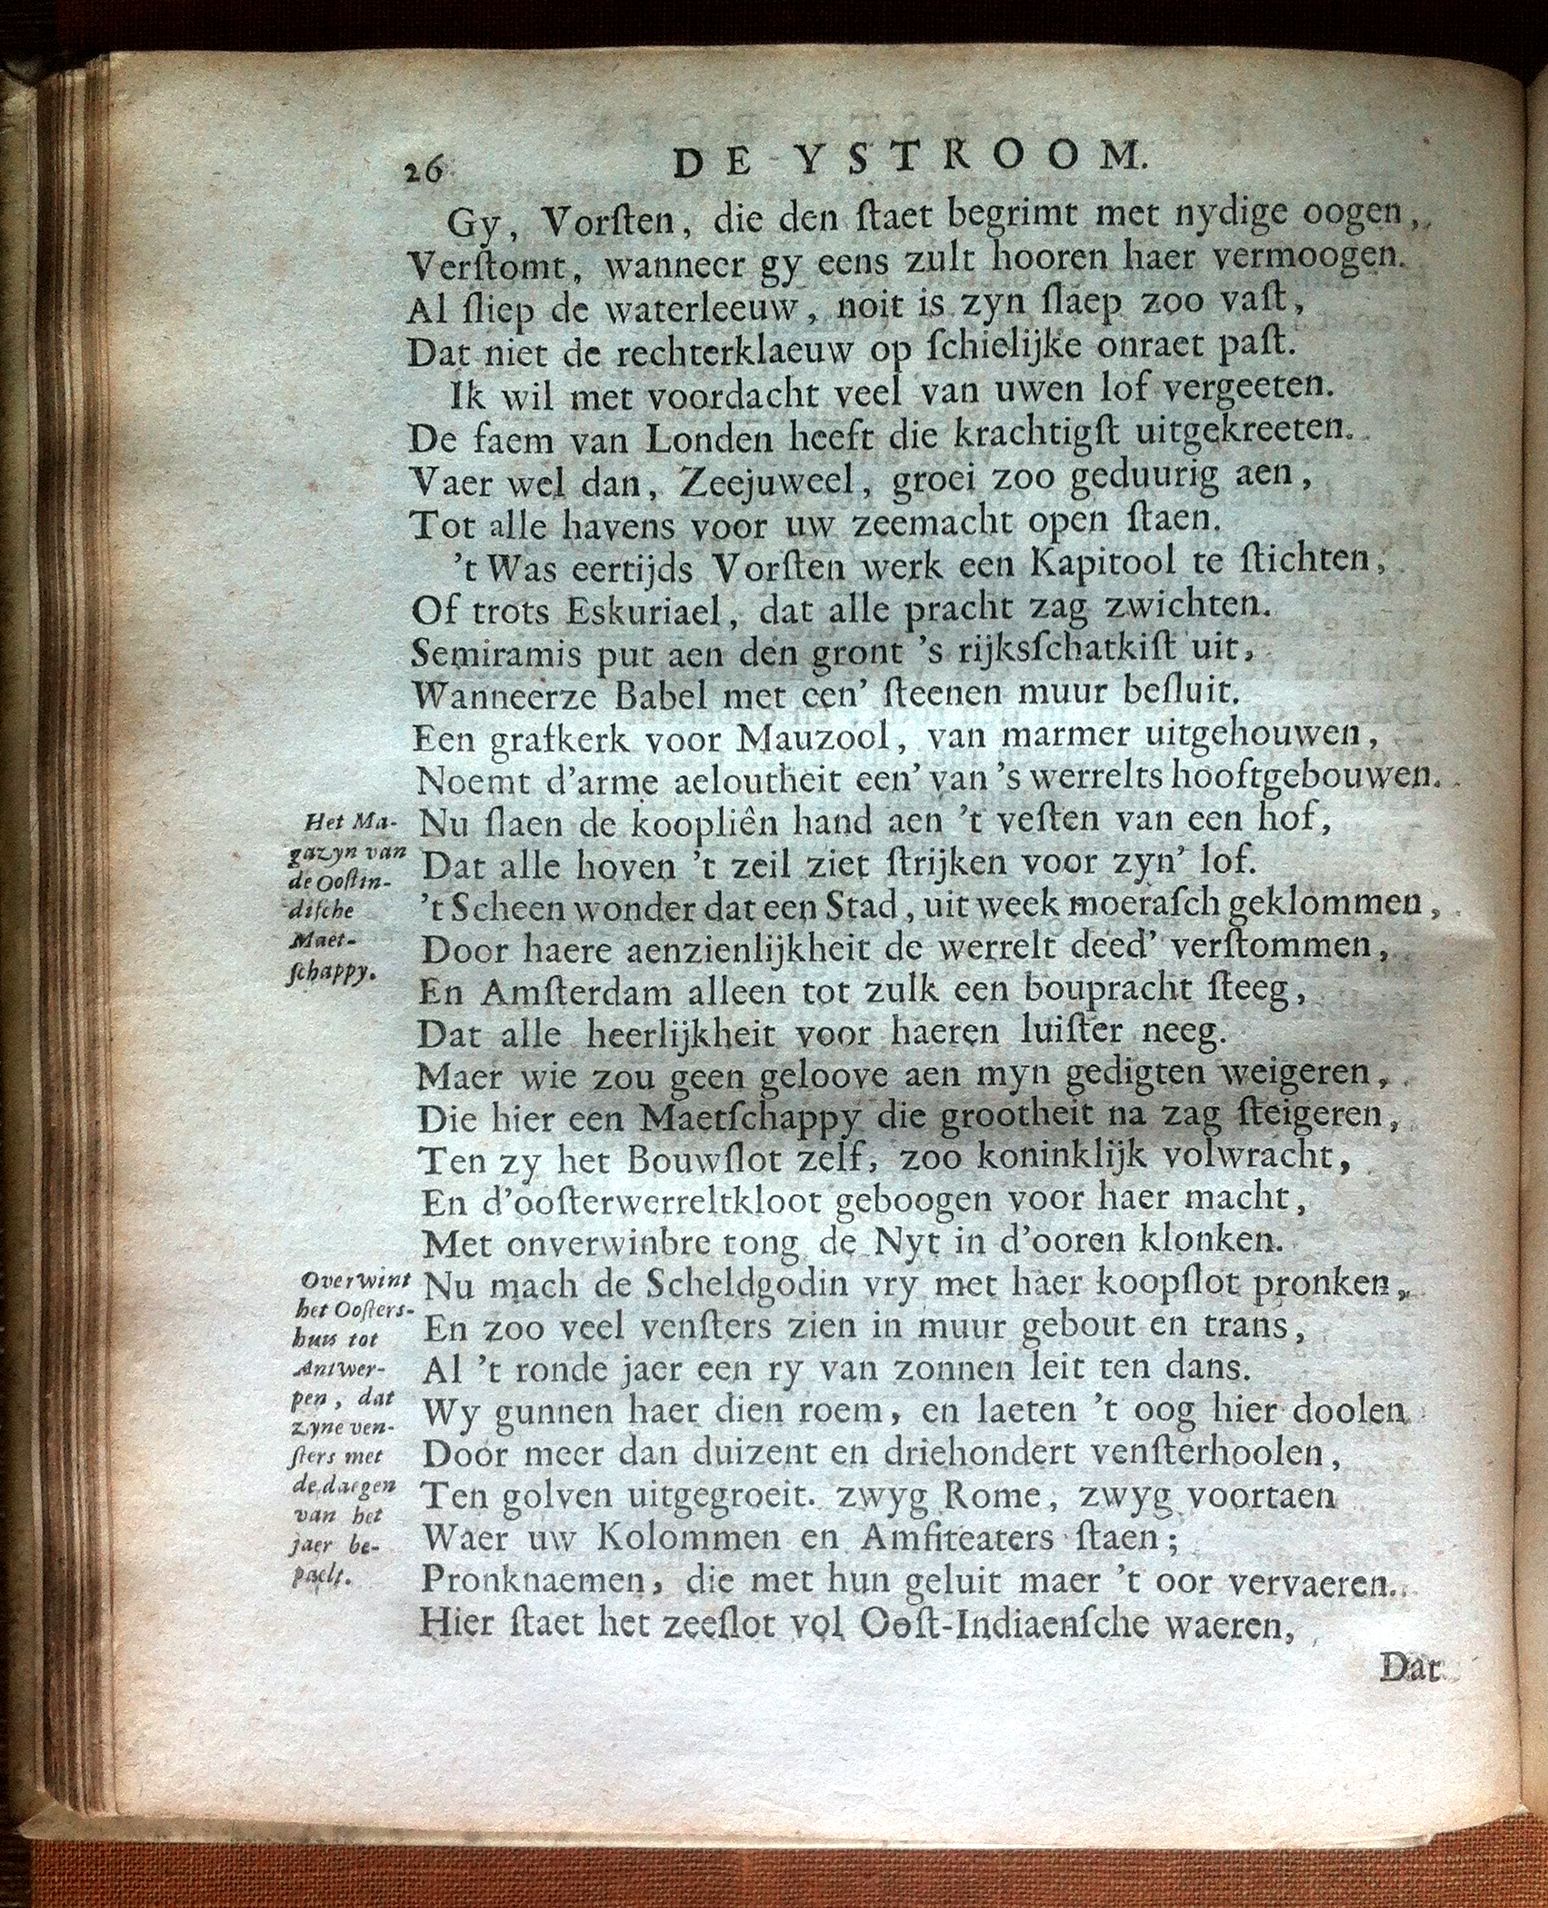 26 DE YSTROOM.
Gy, Vorſten, die den ſtaet begrimt met nydige oogen,
Verſtomt, wanneer gy eens zult hooren haer vermoogen.
Al ſliep de waterleeuw, noit is zyn ſlaep zoo vaſt,
Dat niet de rechterklaeuw op ſchielijke onraet paſt.
Ik wil met voordacht veel van uwen lof vergeeten.
De faem van Londen heeft die krachtigſt uitgekreeten.
Vaer wel dan, Zeejuweel, groei zoo geduurig aen,
Tot alle havens voor uw zeemacht open ſtaen.
't Was eertijds Vorſten werk een Kapitool te ſtichten,
Of trots Eskuriael, dat alle pracht zag zwichten.
Semiramis put aen den gront 's rijksſchatkiſt uit,
Wanneerze Babel met een' ſteenen muur beſluit.
Een grafkerk voor Mauzool, van marmer uitgehouwen,
Noemt d'arme aeloutheit een' van 's werrelts hooftgebouwen.
Nu ſlaen de koopliên hand aen 't veſten van een hof,
Dat alle hoven 't zeil ziet ſtrijken voor zyn' lof.
't Scheen wonder dat een Stad, uit week moeraſch geklommen,
Door haere aenzienlijkheit de werrelt deed' verſtommen,
En Amſterdam alleen tot zulk een boupracht ſteeg,
Dat alle heerlijkheit voor haeren luiſter neeg.
Maer wie zou geen geloove aen myn gedigten weigeren,
Die hier een Maetſchappy die grootheit na zag ſteigeren,
Ten zy het Bouwſlot zelf, zoo koninklijk volwracht,
En d'ooſterwerreltkloot geboogen voor haer macht,
Met onverwinbre tong de Nyt in d'ooren klonken.
Nu mach de Scheldgodin vry met haer koopſlot pronken,
En zoo veel venſters zien in muur gebout en trans,
Al 't ronde jaer een ry van zonnen leit ten dans.
Wy gunnen haer dien roem, en laeten 't oog hier doolen
Door meer dan duizent en driehondert venſterhoolen,
Ten golven uitgegroeit. zwyg Rome, zwyg voortaen
Waer uw Kolommen en Amfiteaters ſtaen;
Pronknaemen, die met hun geluit maer 't oor vervaeren.
Hier ſtaet het zeeſlot vol Ooſt-Indiaenſche waeren,
Dat
Het Ma-
gazyn van
de Ooſtin-
diſche
Maet-
ſchappy.
Overwint
het Ooſters-
huis tot
Antwer-
pen, dat
zyne ven-
ſters met
de daegen
van het
jaer be-
paelt.